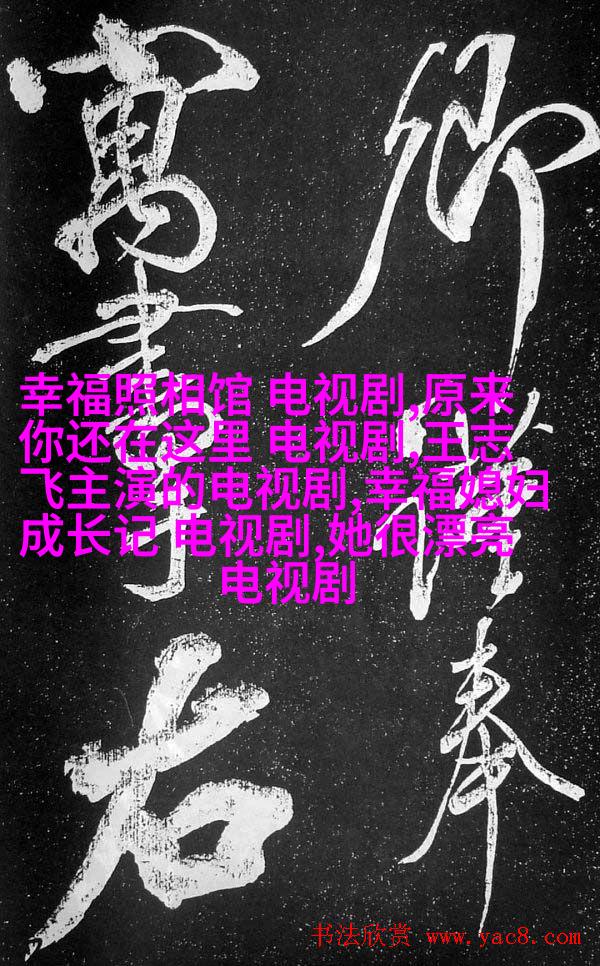 卿謹奉
寓書于右
幸福照相馆 电视剧,原来
你还在这里 电视剧,王志
飞主演的电视剧,幸福媳妇
成长记 电视剧,她很漂亮
电视剧
书法欣赏 www.yac8.com